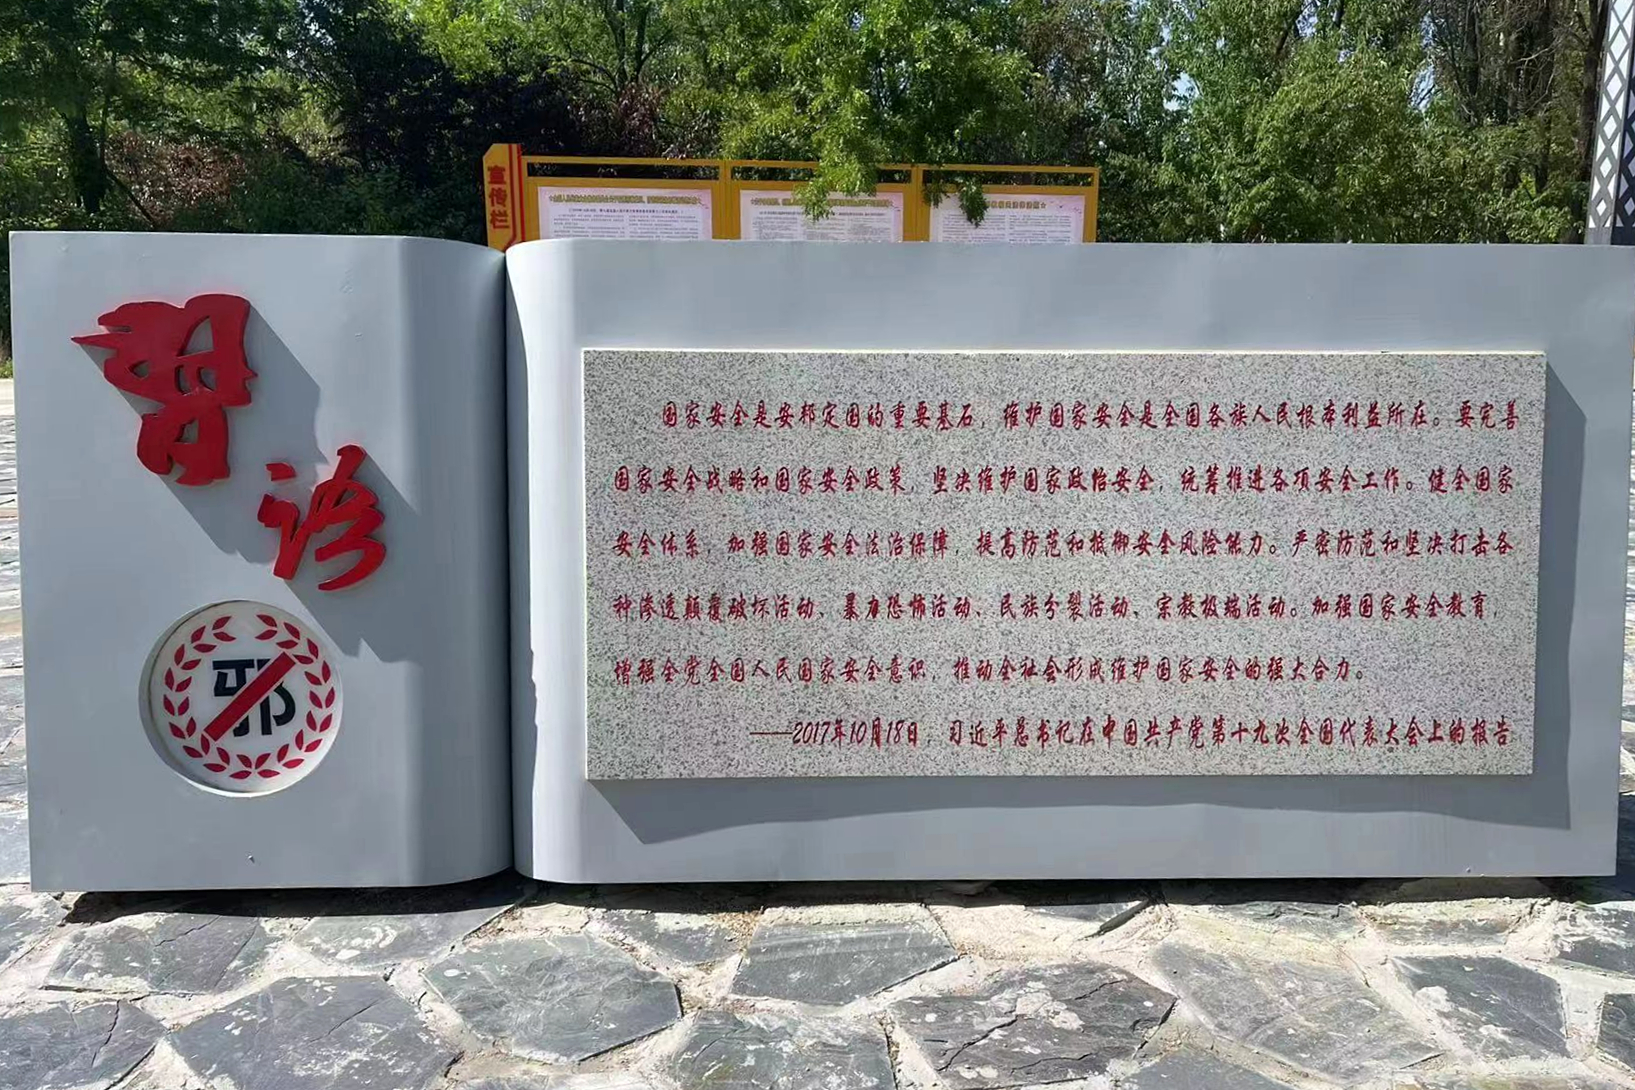 宣传栏
習
语
邪
国家安全是安邦定国的重要基石，维护国家安全是全国各族人民根本利益所在。要完善
国家安全战略和国家安全政策，坚决维护国家政治安全，统筹推进各项安全工作。健全国家
安全体系，加强国家安全法治保障，提高防范和抵御安全风险能力。严密防范和坚决打击各
种渗透颠覆破坏活动、暴力恐怖活动、民族分裂活动、宗教极端活动。加强国家安全教育，
增强全党全国人民国家安全意识，推动全社会形成维护国家安全的强大合力。
——2017年10月18日，习近平总书记在中国共产党第十九次全国代表大会上的报告